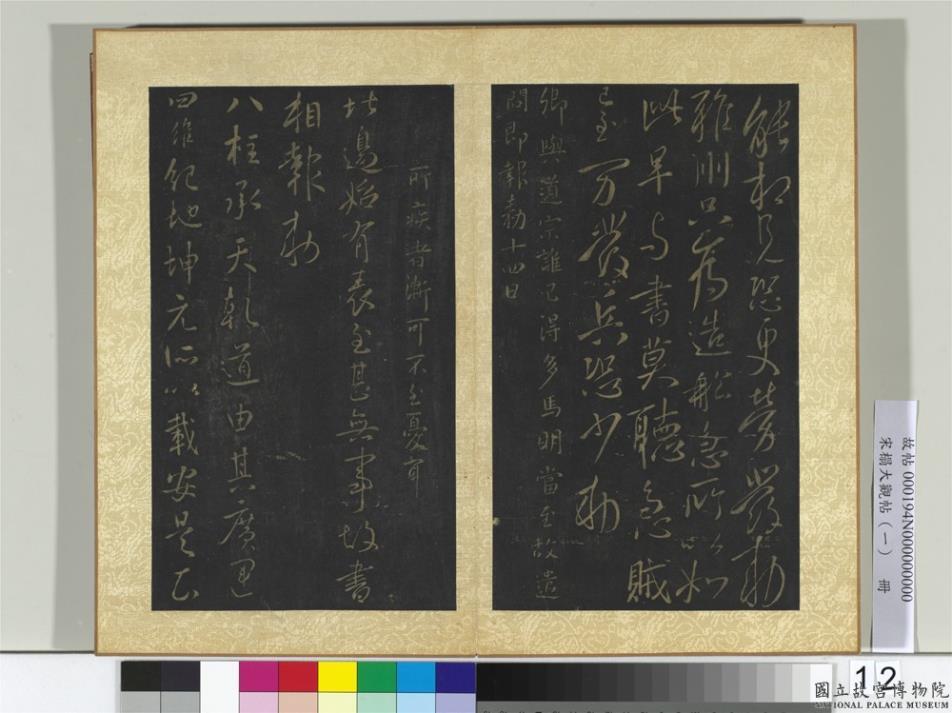 能相見恐更勞發勅
雅州只為造船急所以如
此早与書莫聽急賊
已至万發兵恐少勅
卿與道宗誰已得多馬明當至故遣
問即報勅十四日
所疾者漸可不至憂耳
比邊始有表至甚無事故書
相報勅
八柱承天乾道由其廣運
四維紀地坤元所以載安是以
故帖 000194N000000000
宋搨大觀帖(一) 冊
12
國立故宮博物院
NATIONAL PALACE MUSEUM